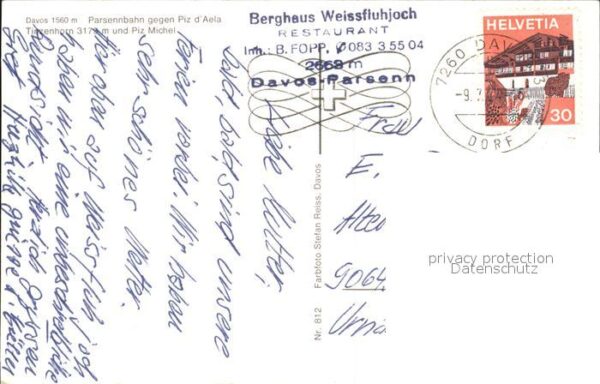 Davos 1560 m Parsennbahn gegen Piz d'Aela
Tinzenhorn 3179 m und Piz Michel
Berghaus Weissfluhjoch
RESTAURANT
Inh.: B. FOPP, 083 3 55 04
2663 m
Davos-Parsenn
HELVETIA
30
7260 DAV
-9.7.7
DORF
Liebe Mutter,
bald sind unsere
Ferien vorbei. Wir haben
sehr schönes Wetter.
Hier oben auf Weissfluhjoch
haben wir eine unbeschreibliche
Rundsicht. Herzlich grüssen
Frau
E.
9064
Nr. 812 Farbfoto Stefan Reiss, Davos
privacy protection
Datenschutz